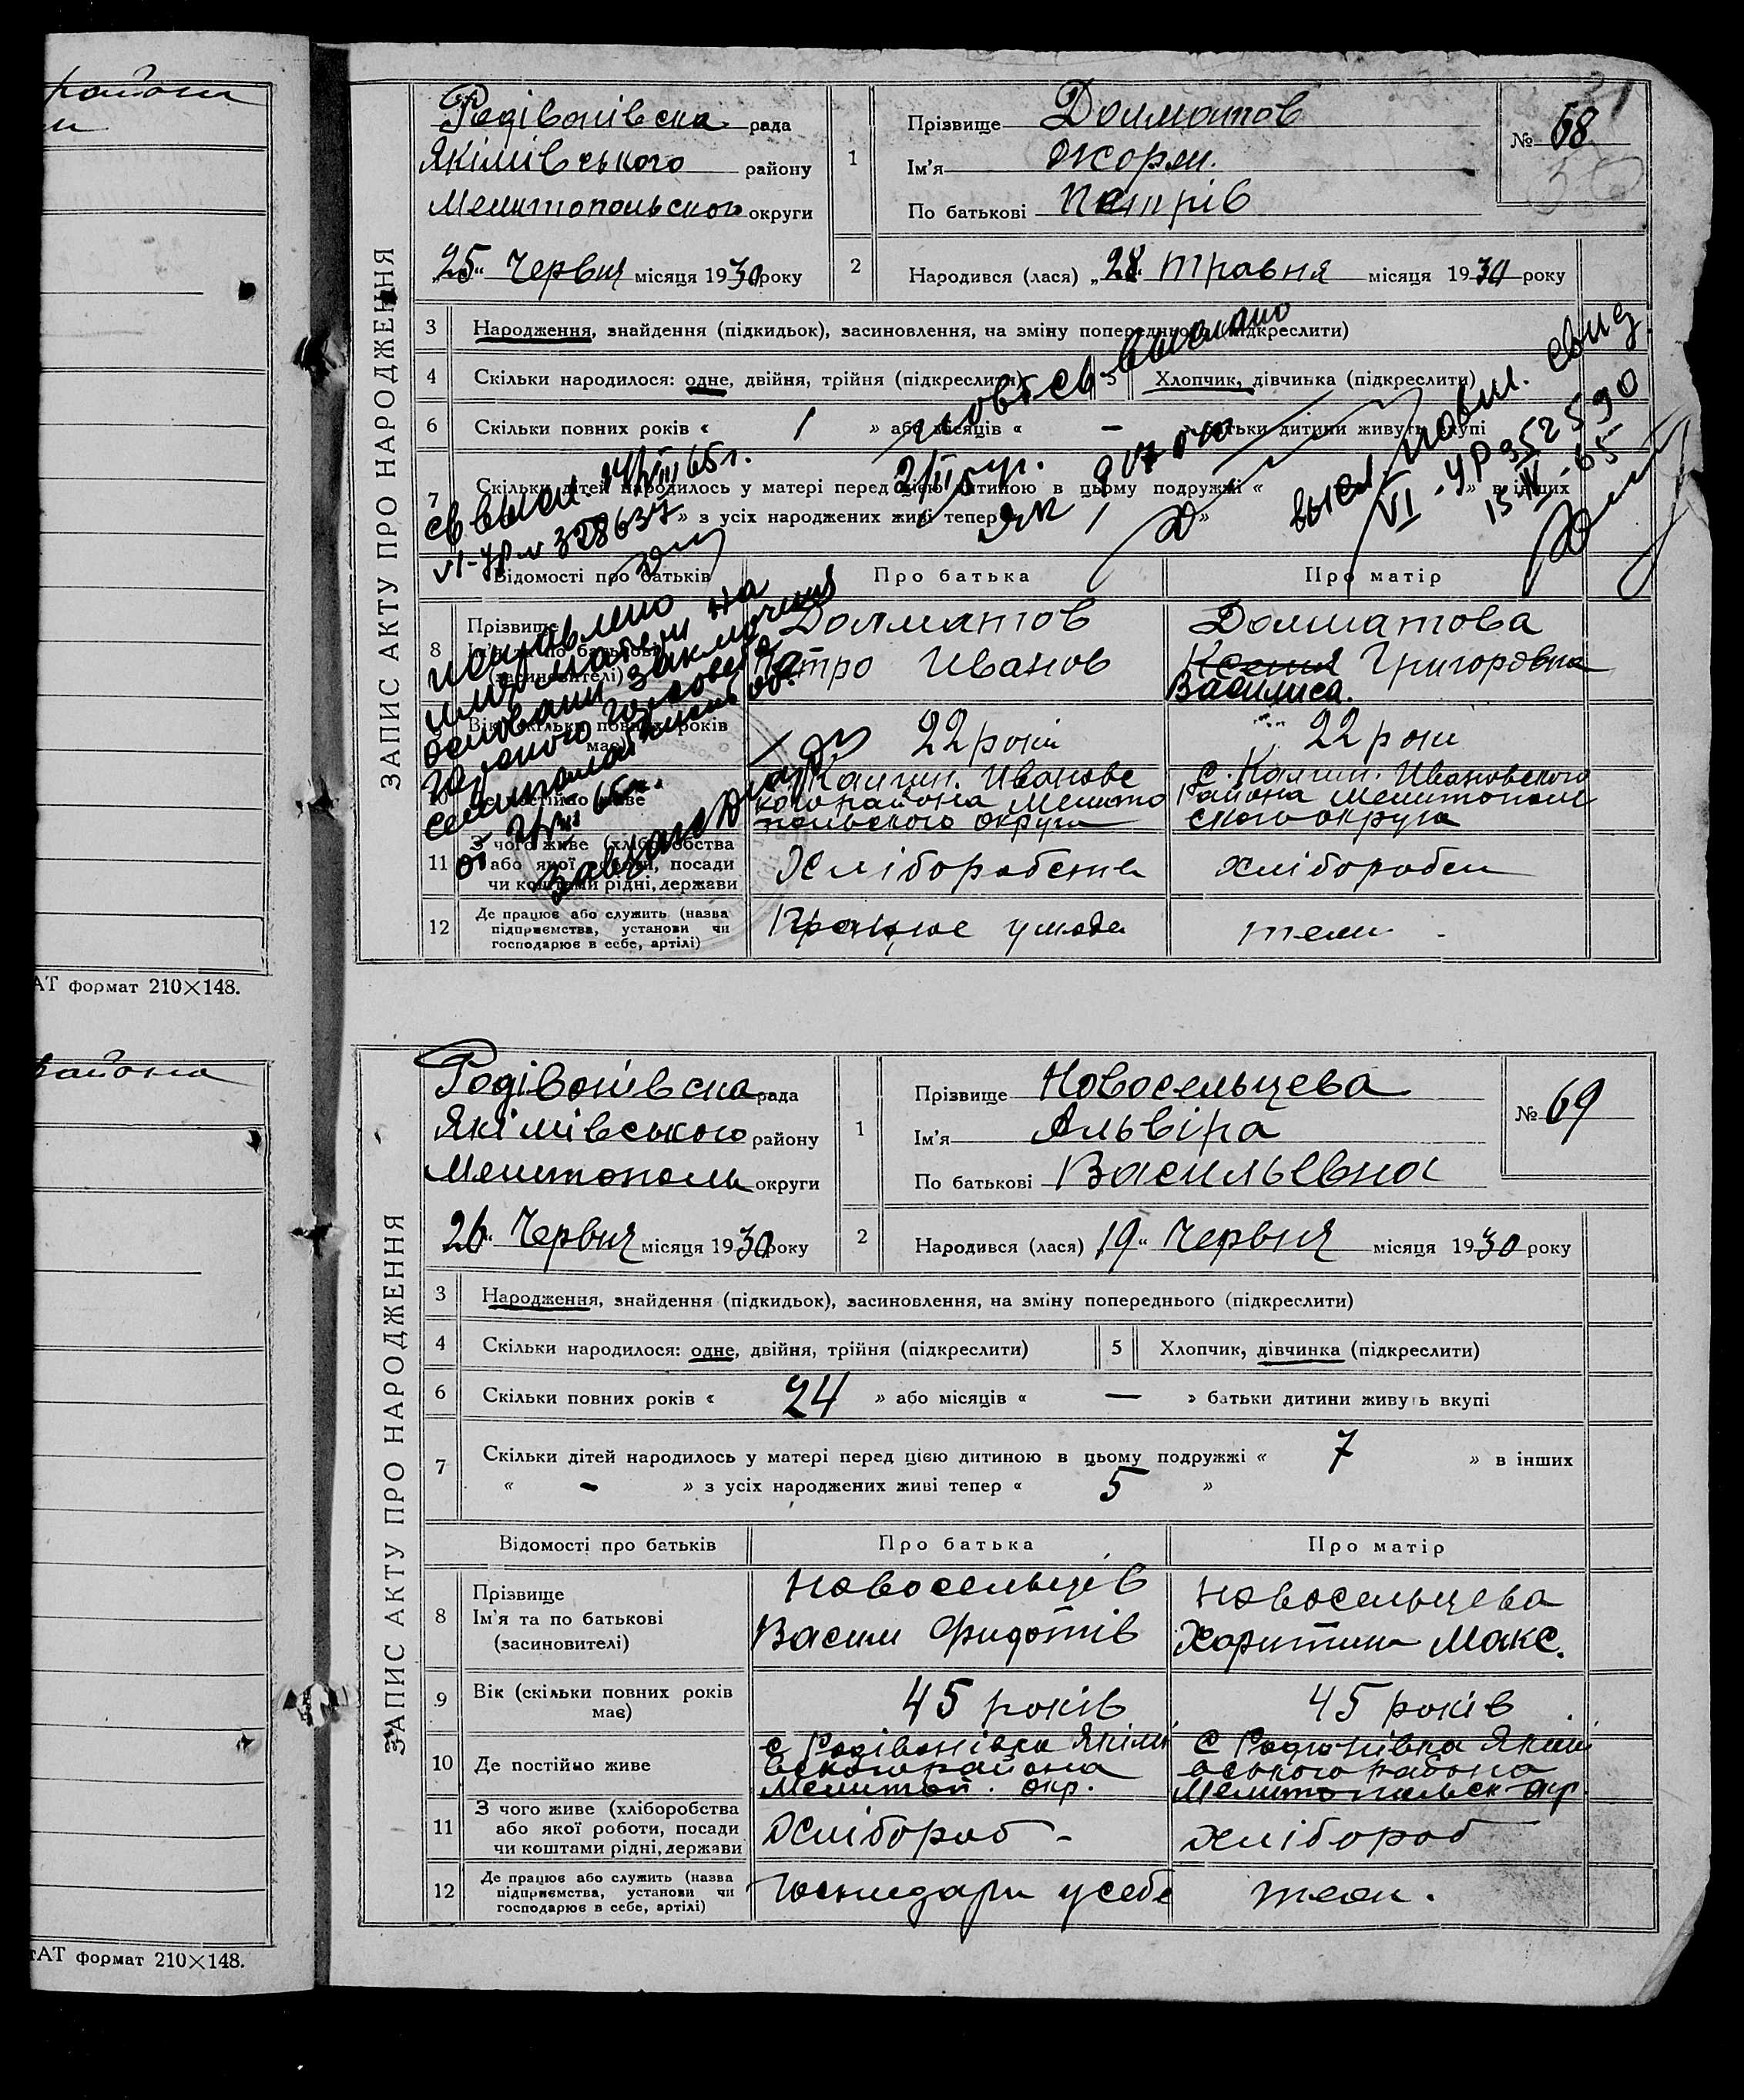 района
АТ формат 210×148.
района
АТ формат 210×148.
ЗАПИС АКТУ ПРО НАРОДЖЕННЯ
Родівонівска рада
Якімівського району
Мелитопольского округи
„25“ Червня місяця 1930 року
1
Прізвище Долматов
Ім'я
По батькові Петрів
№ 68
2
Народився (лася) „28“ травня місяця 1930 року
3 Народження, знайдення (підкидьок), засиновлення, на зміну попереднього (підкреслити)
4 Скільки народилося: одне, двійня, трійня (підкреслити)
5 Хлопчик, дівчинка (підкреслити)
6 Скільки повних років « 1 » або місяців « — » батьки дитини живуть вкупі
7 Скільки дітей народилось у матері перед цією дитиною в цьому подружжі « » в інших
» з усіх народжених живі тепер « 1 »
св высл
65г.
328637
высл. повт. свид
VI-УР 352590
15 IV-65
исправлено
имя матери на
основании заключения
от
65г.
Відомості про батьків
Про батька
Про матір
8
Прізвище
Долматов
Петро Иванов
Долматова
Ксения Григоровна
Василиса.
22 роки
22 роки
Калин. Ивановс
кого района Мелито
польского округа
с. Калин. Ивановского
Района Мелитополь
ского округа
11 З чого живе (хліборобства
або якої роботи, посади
чи коштами рідні, держави
Хліборобств
хліборобст
12 Де працює або служить (назва
підприємства, установи чи
господарює в себе, артілі)
Працює у
ЗАПИС АКТУ ПРО НАРОДЖЕННЯ
Родівонівска рада
Якімівського району
Мелитополь округи
„26“ Червня місяця 1930 року
1
Прізвище Новосельцева
Ім'я Альвіра
По батькові Васильевна
№ 69
2
Народився (лася) „19“ Червня місяця 1930 року
3 Народження, знайдення (підкидьок), засиновлення, на зміну попереднього (підкреслити)
4 Скільки народилося: одне, двійня, трійня (підкреслити)
5 Хлопчик, дівчинка (підкреслити)
6 Скільки повних років « 24 » або місяців « — » батьки дитини живуть вкупі
7 Скільки дітей народилось у матері перед цією дитиною в цьому подружжі « 7 » в інших
« - » з усіх народжених живі тепер « 5 »
Відомості про батьків
Про батька
Про матір
8
Прізвище
Ім'я та по батькові
(засиновителі)
Новосельцев
Васил Фидотів
Новосельцева
Харитина Макс.
9 Вік (скільки повних років
має)
45 років
45 років
10 Де постійно живе
с Родівонівка Якім
вского района
Мелитоп. окр.
с Родионівка Яким
вського района
Мелитопольск окр
11 З чого живе (хліборобства
або якої роботи, посади
чи коштами рідні, держави
Хлібороб -
хлібороб
12 Де працює або служить (назва
підприємства, установи чи
господарює в себе, артілі)
у себе